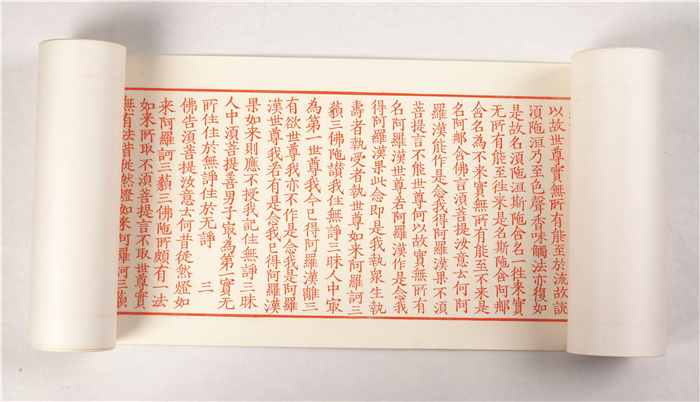 以故世尊實無所有能至於流故說
湏陁洹乃至色聲香味觸法亦復如
是故名湏陁洹斯陁含名一往来實
无所有能至往来是名斯陁含阿那
含名為不来實無所有能至不来是
名阿那含佛言湏菩提汝意云何阿
羅漢能作是念我得阿羅漢果不湏
菩提言不能世尊何以故實無所有
名阿羅漢世尊若阿羅漢作是念我
得阿羅漢果此念即是我執衆生執
壽者執受者執世尊如来阿羅訶三
藐三佛陁讃我住無諍三昧人中㝡
為第一世尊我今已得阿羅漢離三
有欲世尊我亦不作是念我是阿羅
漢世尊我若有是念我已得阿羅漢
果如来則應不授我記住無諍三昧
人中湏菩提善男子㝡為第一實无
所住住於無諍住於无諍 三
佛告湏菩提汝意云何昔從然燈如
来阿羅訶三藐三佛陁所頗有一法
如来所取不湏菩提言不取世尊實
無有法昔從然燈如来阿羅訶三藐